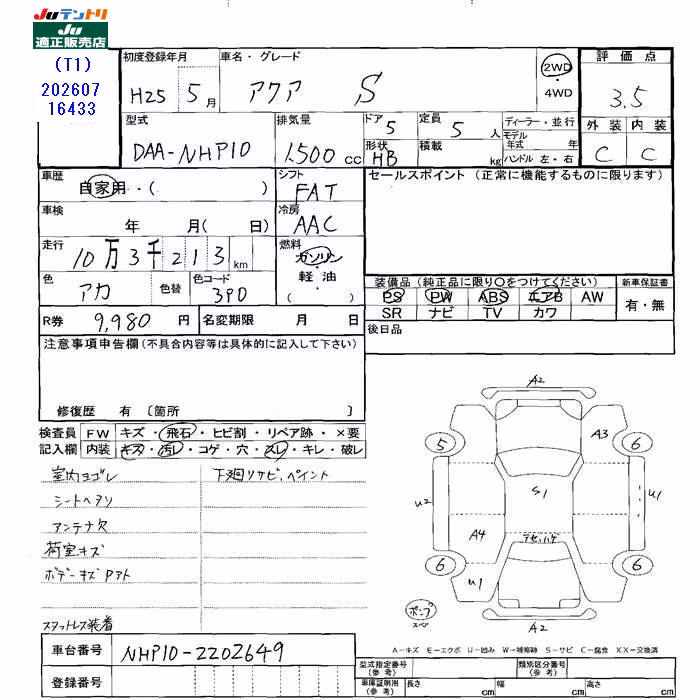 Juテントリ
Ju
適正販売店
(T1)
202607
16433
初度登録年月
H25 5月
車名・グレード
アクア S
2WD
・
4WD
評価点
3.5
外装 内装
C C
型式
DAA-NHP10
排気量
1500 cc
ドア 5
形状 HB
定員 5 人
積載 kg
ディーラー・並行
モデル年式 年
ハンドル 左・右
車歴
自家用・( )
シフト
FAT
セールスポイント (正常に機能するものに限ります)
車検
年 月( 日)
冷房
AAC
走行
10万3千213km
燃料
ガソリン
・
軽油
( )
色
アカ
色替
色コード
3P0
装備品 (純正品に限り○をつけてください)
PS PW ABS エアB AW
SR ナビ TV カワ
新車保証書
有・無
R券 9,980 円
名変期限 月 日
後日品
注意事項申告欄(不具合内容等は具体的に記入して下さい)
修復歴 有 〔箇所 〕
検査員 FW キズ・飛石・ヒビ割・リペア跡・×要
記入欄 内装 キズ・汚レ・コゲ・穴・スレ・キレ・破レ
室内ヨゴレ
下廻リサビ、ペイント
シートヘタリ
アンテナ欠
荷室キズ
ボデーキズアト
スタットレス装着
A2
A3
5
6
U2
S1
U1
A4
6
6
U1
A2
A-キズ E-エクボ U-凹み W-補修跡 S-サビ C-腐食 XX-交換済
車台番号 NHP10-2202649
登録番号
型式指定番号(参考)
類別区分番号(参考)
車庫証明用(参考) 長さ cm 幅 cm 高さ cm